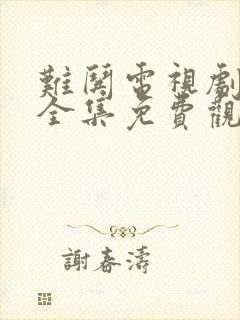 難鬨電視劇
全集免費觀
謝春濤